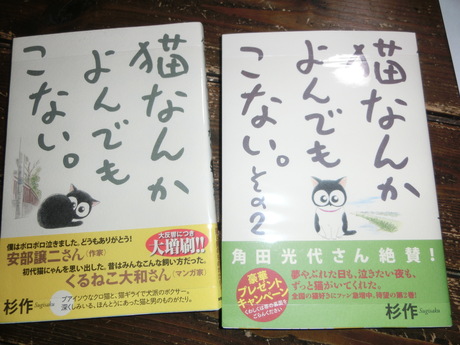 猫なんか
よんでも
こない。
大反響につき
大増刷!!
僕はボロボロ泣きました。どうもありがとう!
安部譲二さん(作家)
初代猫にゃんを思い出した。昔はみんなこんな飼い方だった。
くるねこ大和さん(マンガ家)
杉作 Sugisaku
ブアイソウなクロ猫と、猫ギライで犬派のボクサー。
深くしみいる、ほんとうにあった猫と男のものがたり。
猫なんか
よんでも
こない。その2
杉作
角田光代さん絶賛!
豪華
プレゼント
キャンペーン
くわしくは帯の裏面を
ごらんください
夢やぶれた日も、泣きたい夜も、
ずっと猫がいてくれた。
全国の猫好きにファン急増中、待望の第2巻!
杉作 Sugisaku